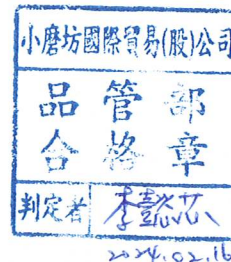 小磨坊國際貿易(股)公司
品管部
合格章
判定者 李懿芯
2024.02.16